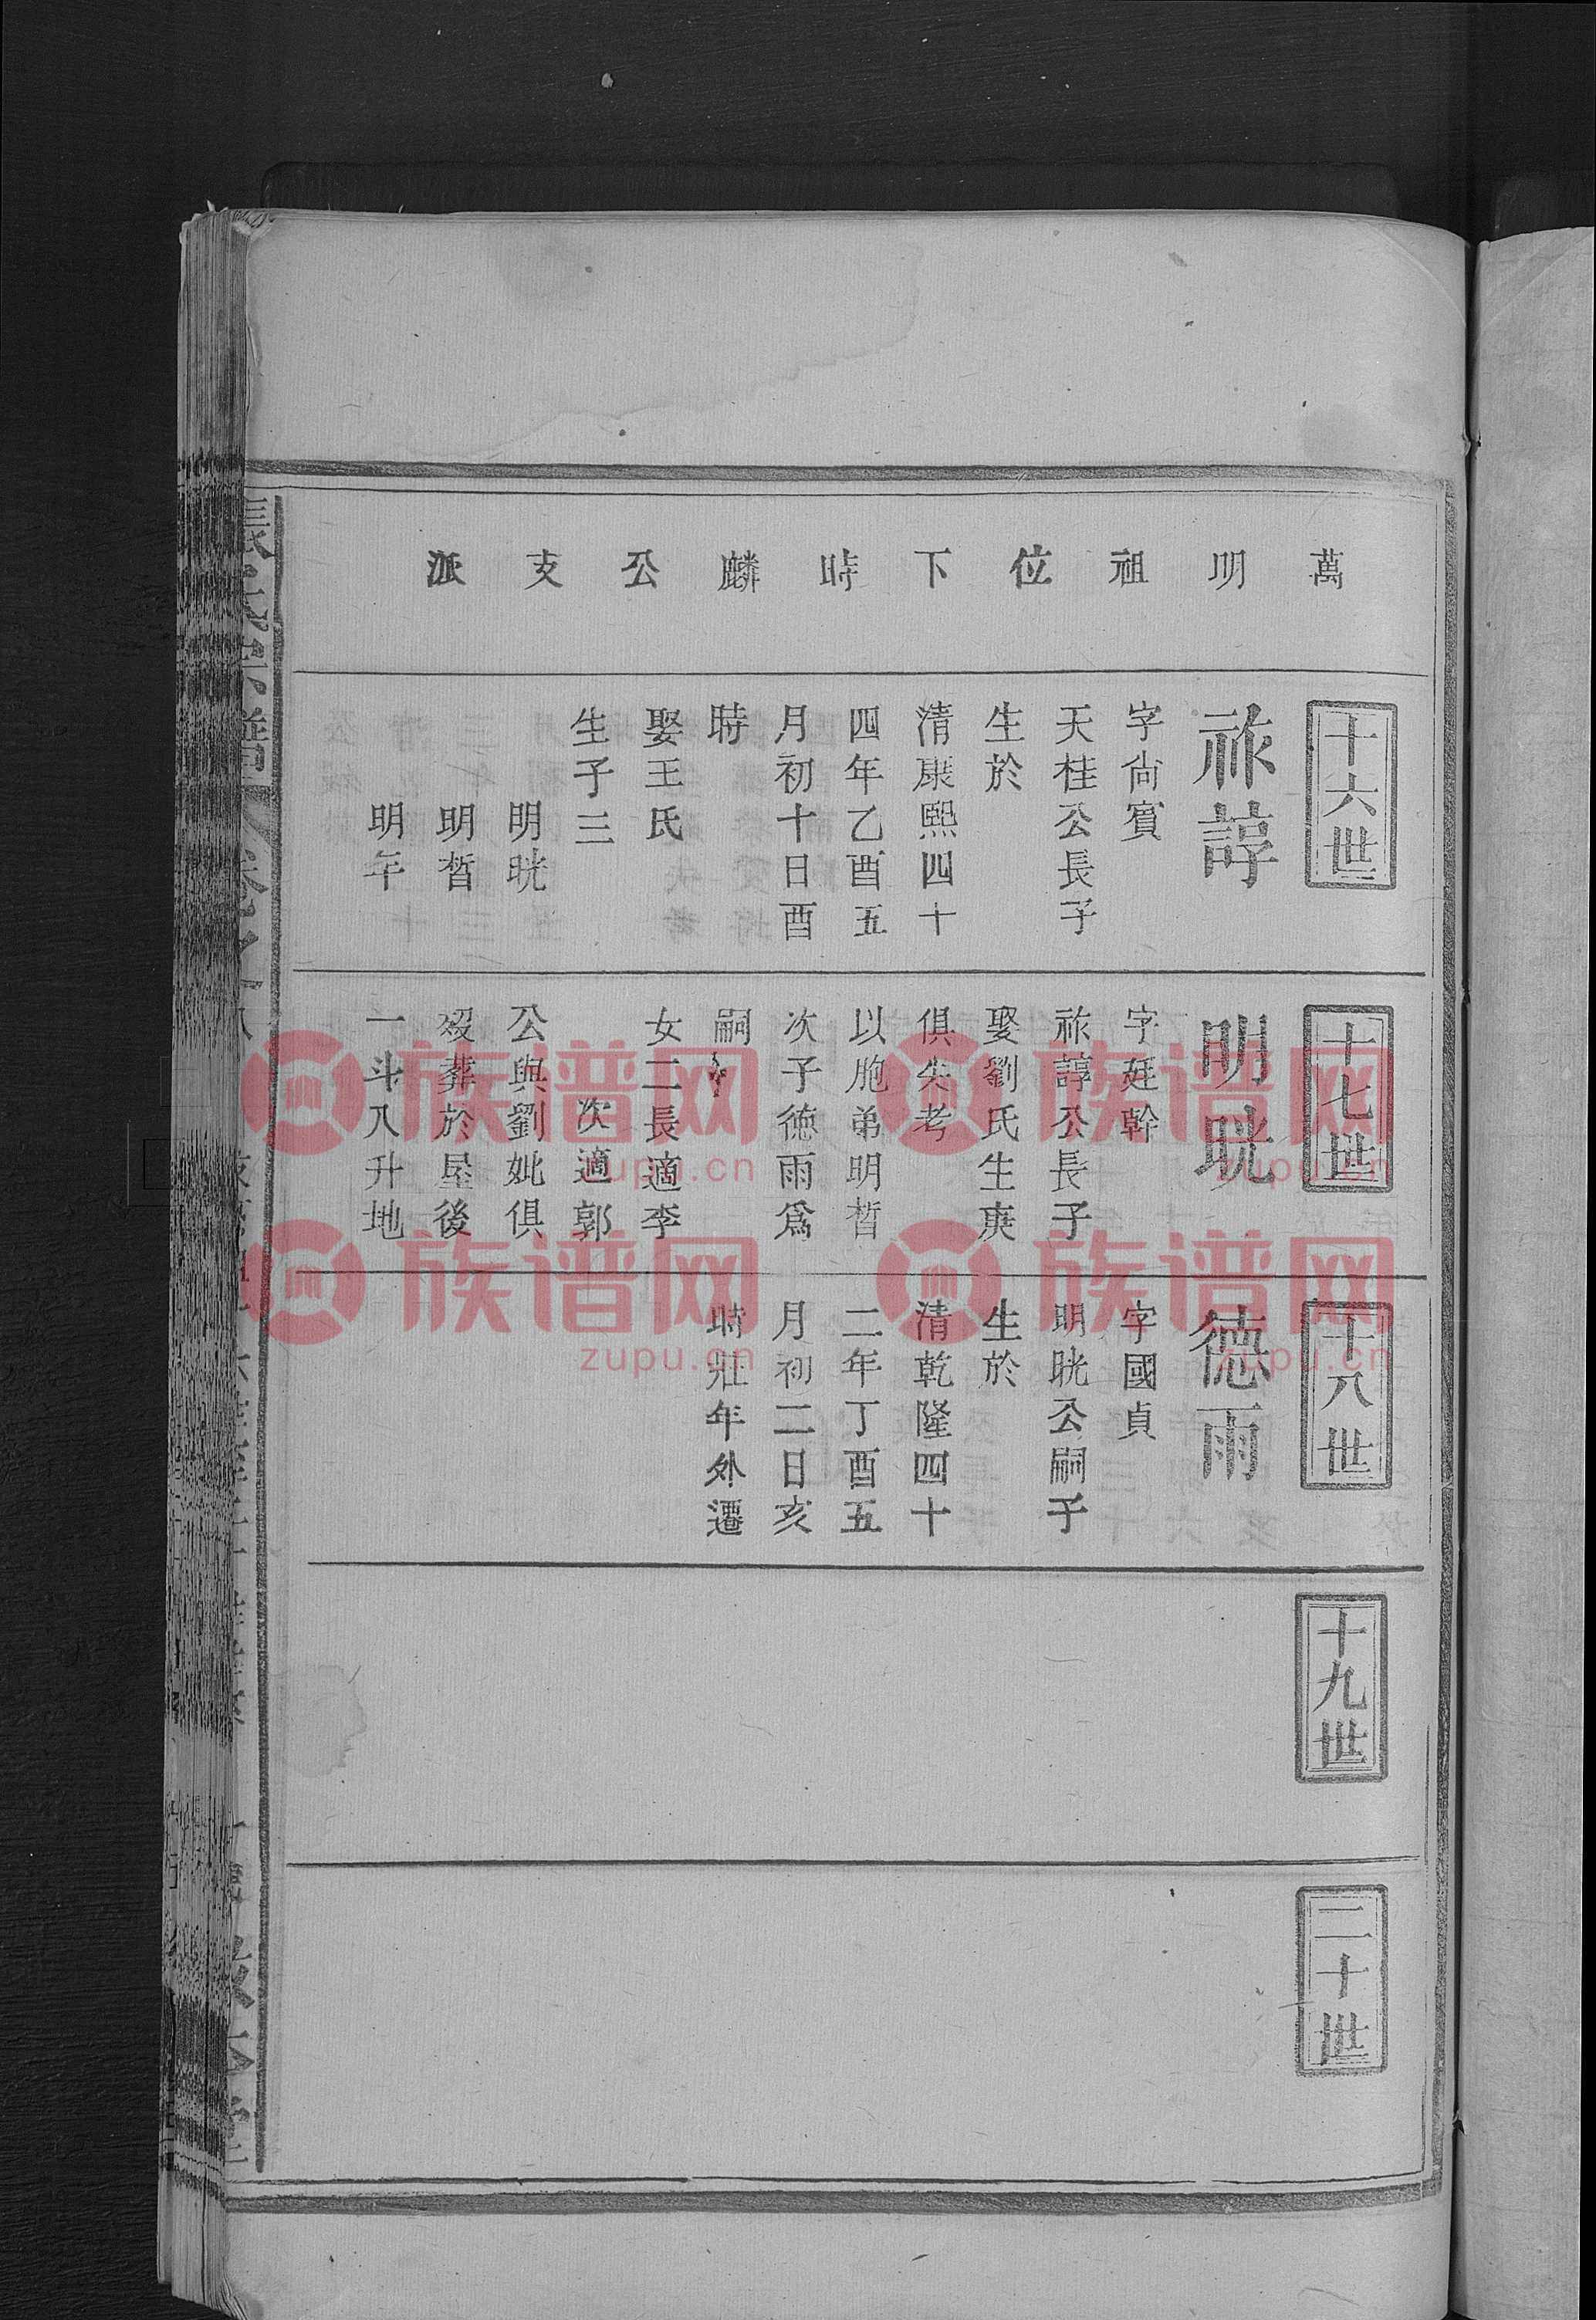 萬明祖位下時麟公支派
十六世
祚諄
字尙賓
天桂公長子
生於
清康熙四十
四年乙酉五
月初十日酉
時
娶王氏
生子三
明晄
明晳
明年
十七世
明晄
字廷幹
祚諄公長子
娶劉氏生庚
俱失考
以胞弟明晳
次子德雨爲
嗣
女二長適李
次適郭
公與劉妣俱
歿葬於屋後
一斗八升地
十八世
德雨
字國貞
明晄公嗣子
生於
清乾隆四十
二年丁酉五
月初二日亥
時壯年外遷
十九世
二十世
族谱网
zupu.cn
族谱网
zupu.cn
族谱网
zupu.cn
族谱网
zupu.cn